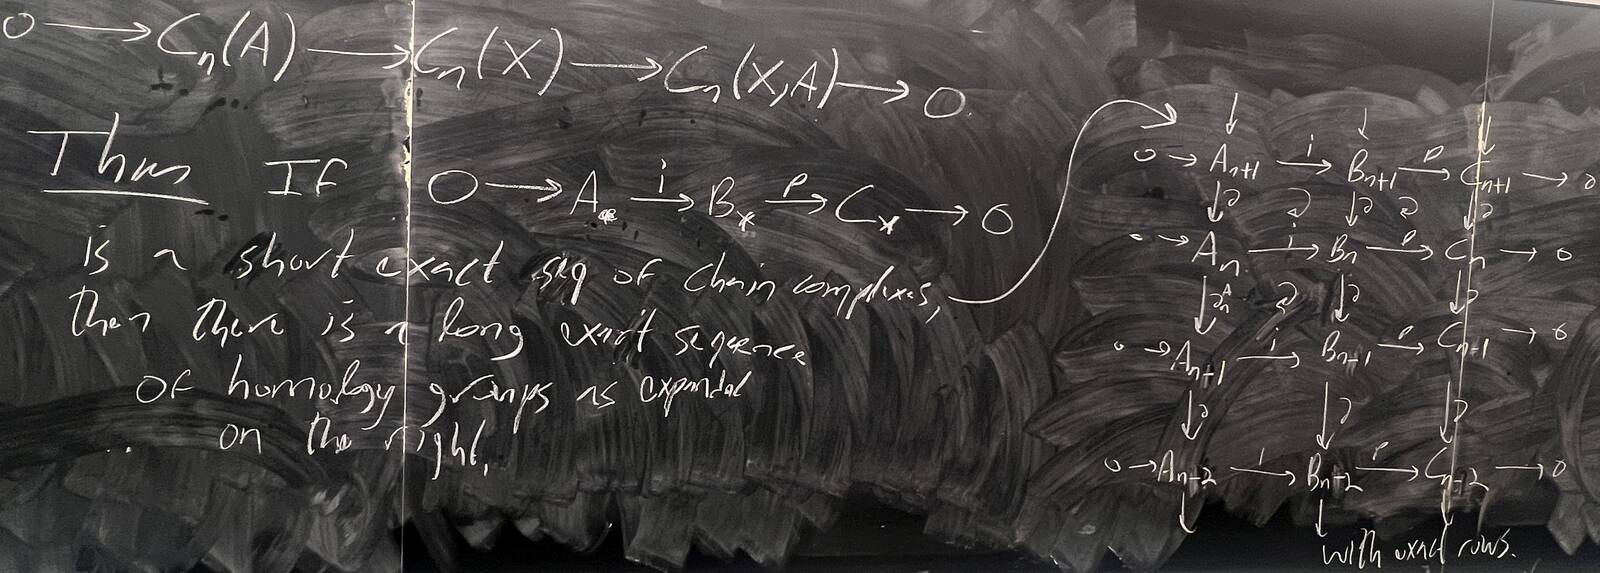 0 → Cₙ(A) → Cₙ(X) → Cₙ(X,A) → 0
Thm If 0 → A_* —i→ B_* —p→ C_* → 0
is a short exact seq of chain complexes,
then there is a long exact sequence
of homology groups as expanded
on the right.
↓ ↓ ↓
0 → Aₙ₊₁ —i→ Bₙ₊₁ —p→ Cₙ₊₁ → 0
↓∂ ↓∂ ↓∂
0 → Aₙ —i→ Bₙ —p→ Cₙ → 0
↓∂ₙᴬ ↓∂ ↓∂
0 → Aₙ₊₁ —i→ Bₙ₋₁ —p→ Cₙ₋₁ → 0
↓∂ ↓∂ ↓∂
0 → Aₙ₋₂ —i→ Bₙ₊₂ —p→ Cₙ₋₂ → 0
↓ ↓ ↓
with exact rows.